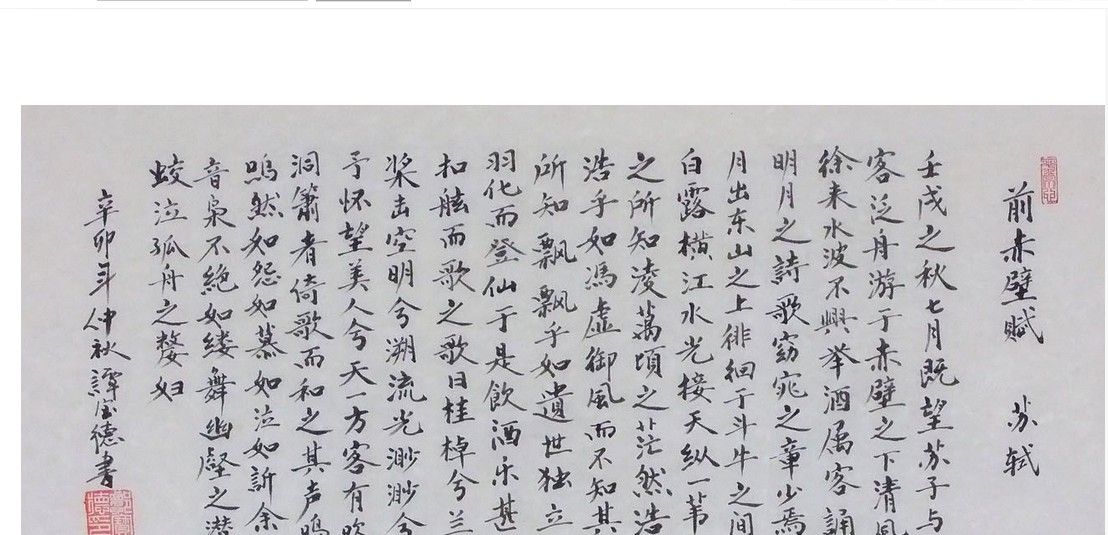 前赤壁赋　苏轼
壬戌之秋七月既望苏子与
客泛舟游于赤壁之下清风
徐来水波不興举酒属客誦
明月之詩歌窈窕之章少焉
月出东山之上徘徊于斗牛之间
白露横江水光接天纵一苇
之所知凌萬頃之茫然浩
浩乎如馮虚御風而不知其
所知飘飘乎如遺世独立
羽化而登仙于是飲酒乐甚
扣舷而歌之歌日桂棹兮兰
桨击空明兮溯流光渺渺兮
予怀望美人兮天一方客有吹
洞簫者倚歌而和之其声鳴
鳴然如怨如慕如泣如訴余
音枭不絶如缕舞幽壑之潜
蛟泣孤舟之嫠妇
辛卯年仲秋譚宝德書